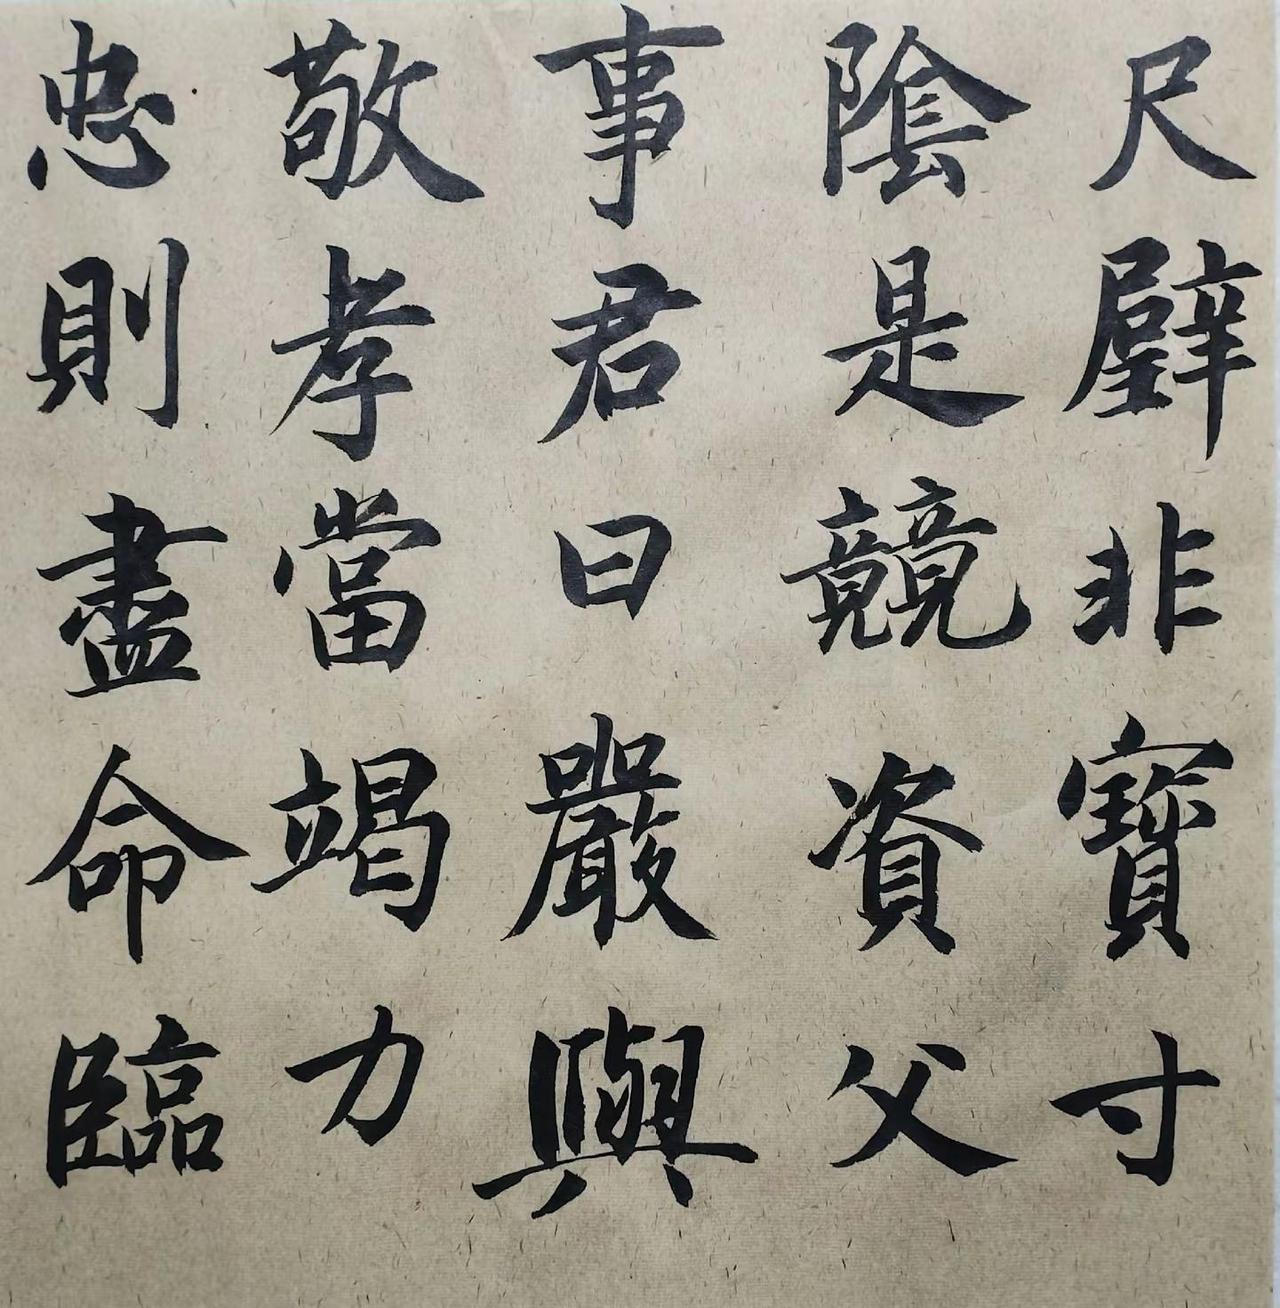 尺璧非寶寸
陰是競資父
事君曰嚴與
敬孝當竭力
忠則盡命臨